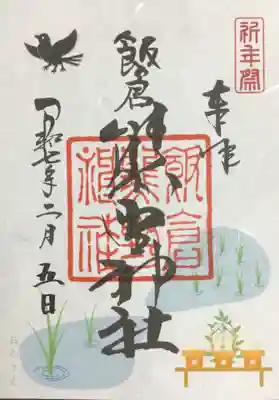 祈年祭
奉拝
飯倉熊野神社
飯倉
熊野
神社
令和七年二月五日